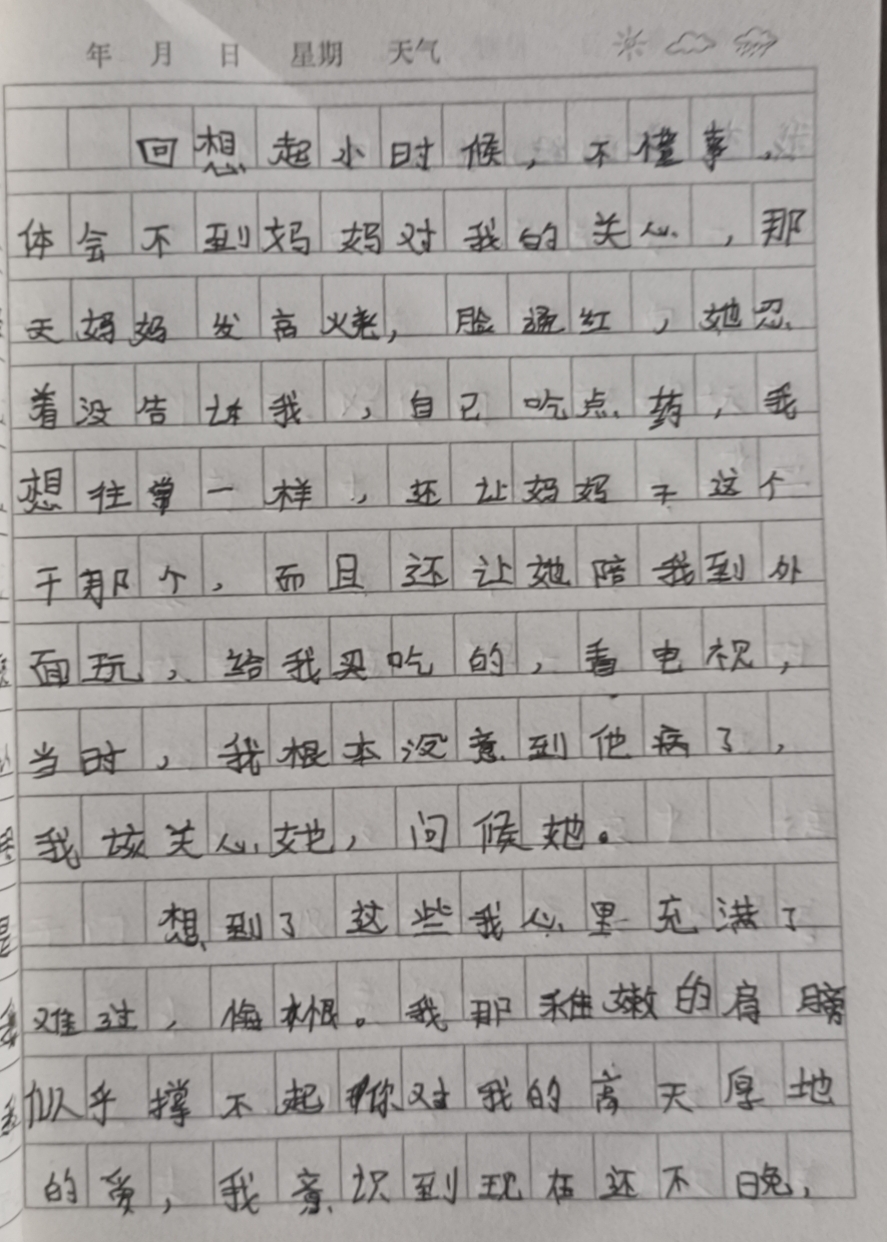 年 月 日 星期 天气
回想起小时候，不懂事，
体会不到妈妈对我的关心，那
天妈妈发高烧，脸通红，她忍
着没告诉我，自己吃点药，我
想往常一样，还让妈妈干这个
干那个，而且还让她陪我到外
面玩，给我买吃的，看电视，
当时，我根本没意到他病了，
我该关心她，问候她。
想到了这些我心里充满了
难过，悔恨。我那稚嫩的肩膀
似乎撑不起你对我的高天厚地
的爱，我意识到现在还不晚，